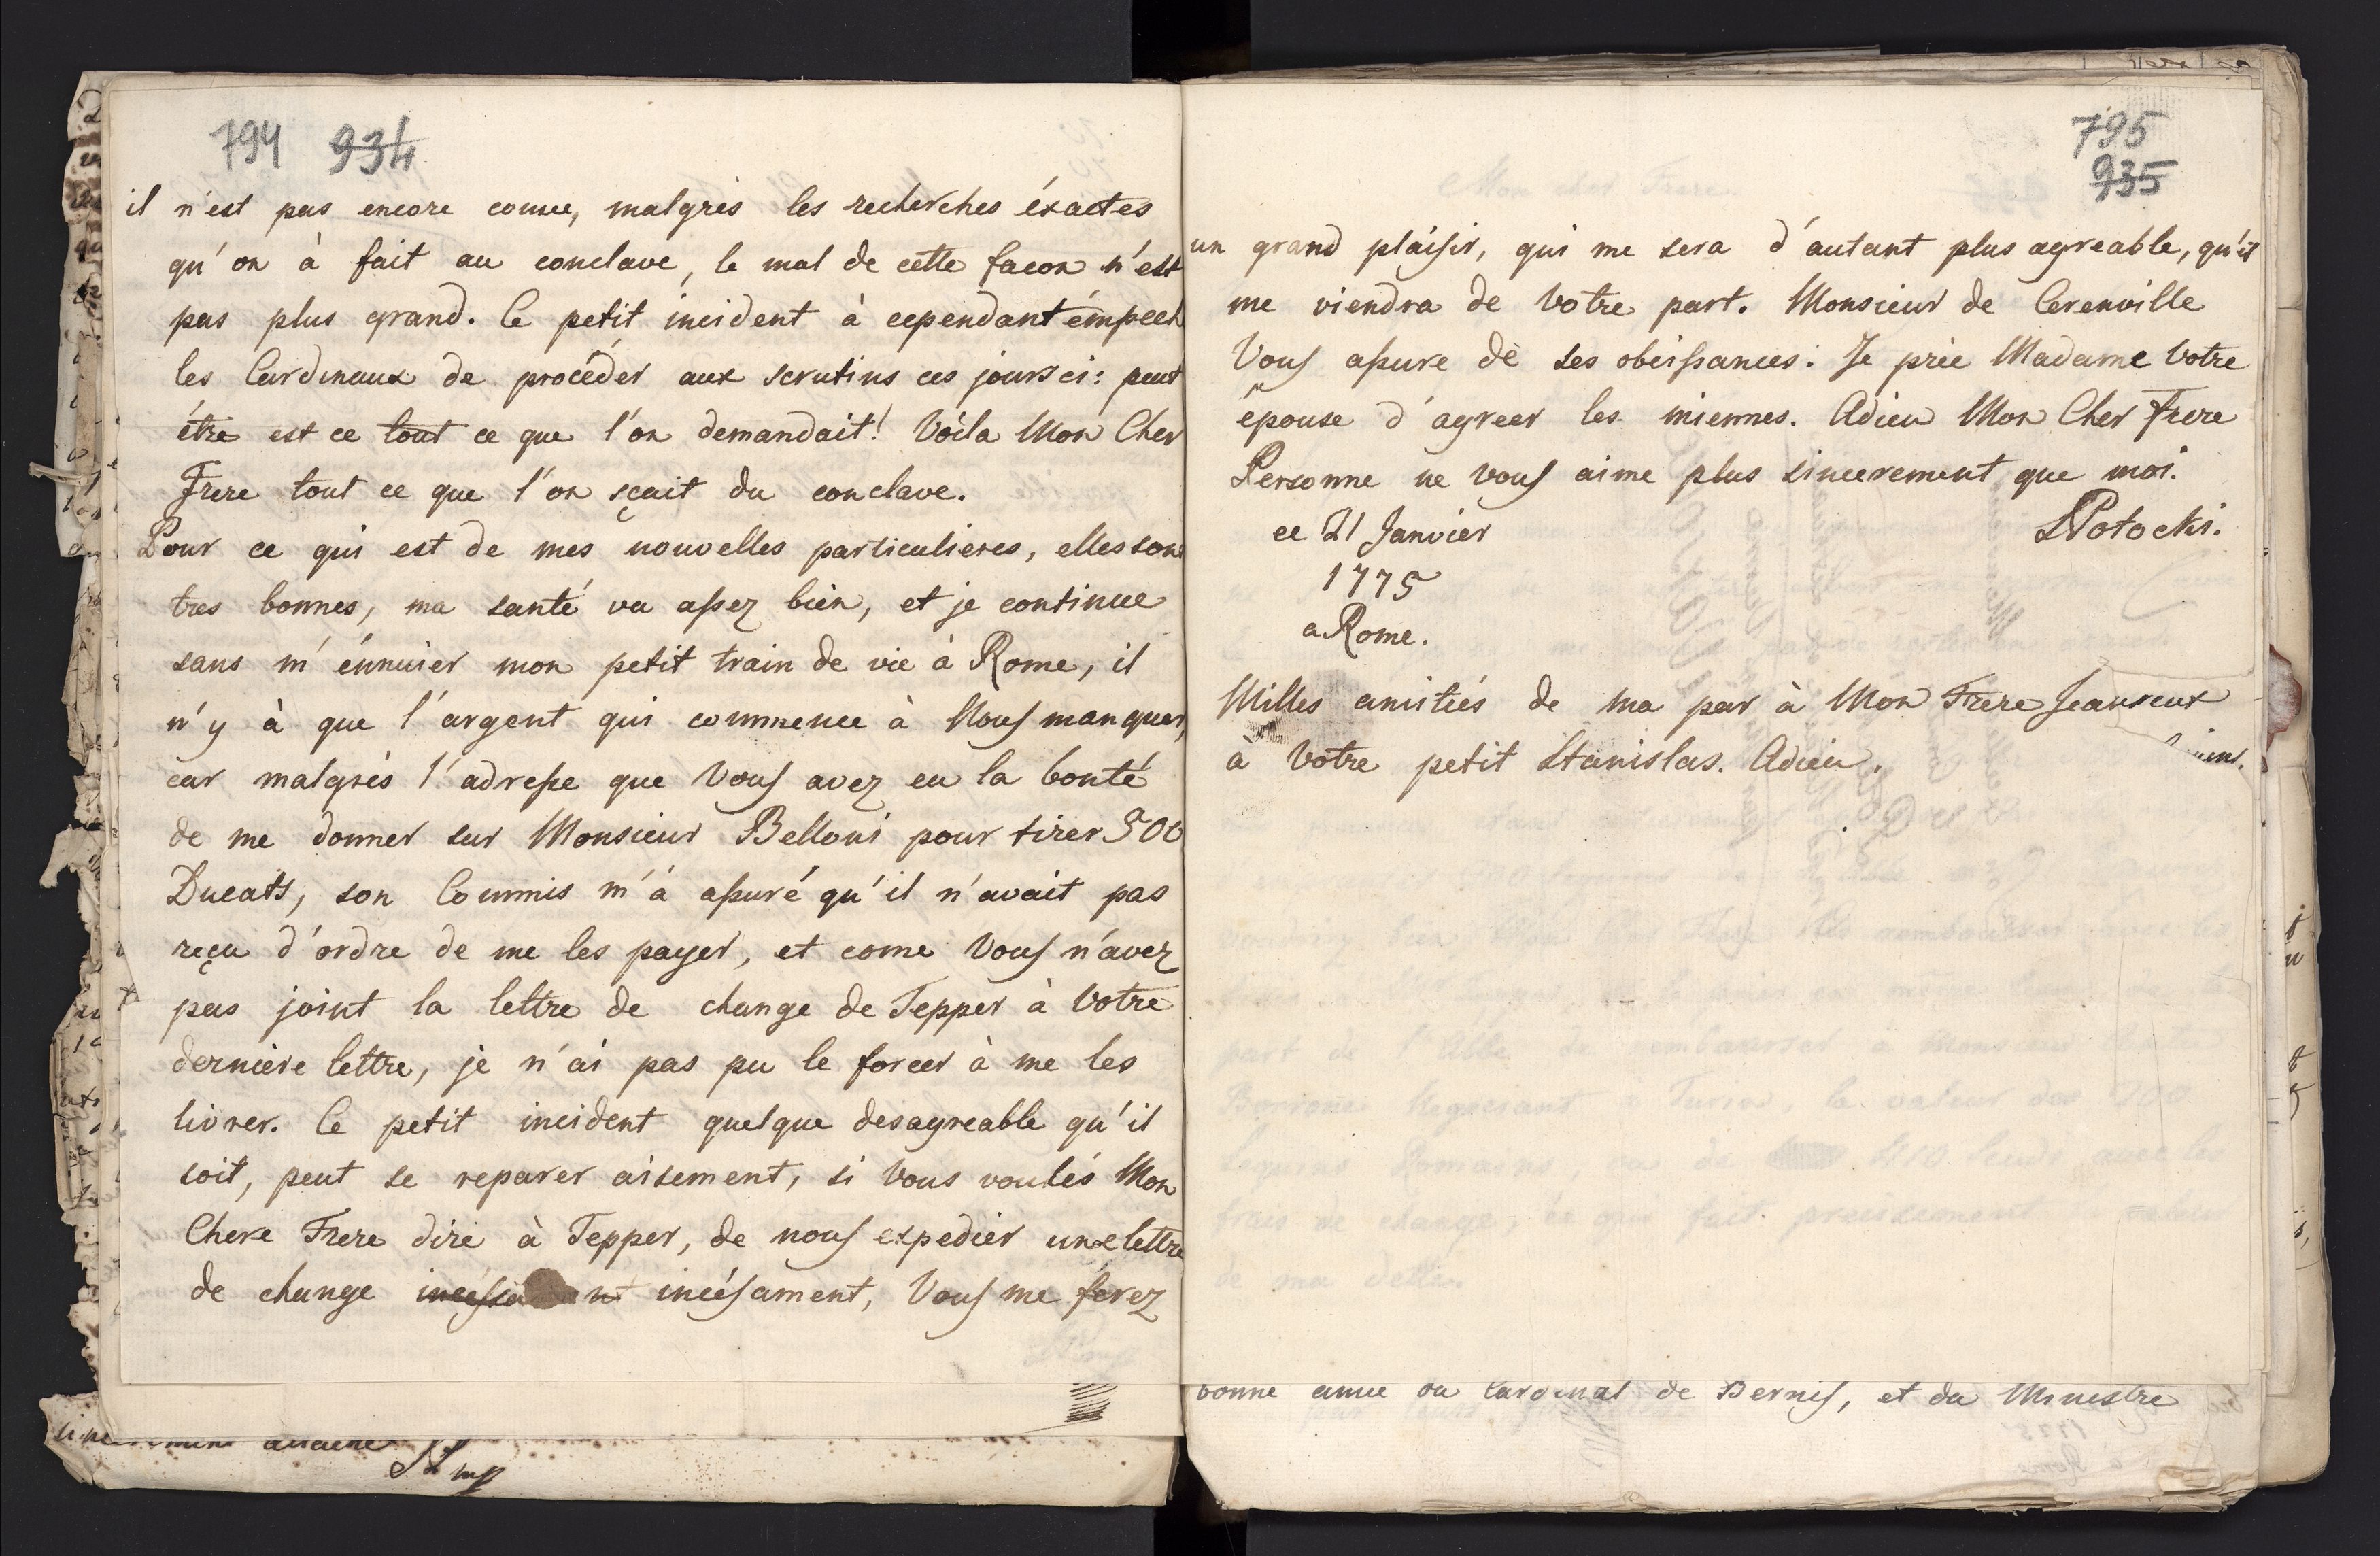 794 934
il n'est pas encore connu, malgrès les recherches éxactes
qu'on à fait au conclave, le mal de cette facon n'est
pas plus grand. Ce petit incident à cependant émpech
les Cardinaux de procéder aux scrutins ces jours ci: peut
étre est ce tout ce que l'on demandait! Voila Mon Cher
Frere tout ce que l'on sçait du conclave.
Pour ce qui est de mes nouvelles particulieres, elles son
tres bonnes, ma santé va assez bien, et je continue
sans m'énnuier mon petit train de vie à Rome, il
n'y à que l'argent qui commence à Nous manquer,
car malgrès l'adresse que Vous avez eu la bonté
de me donner sur Monsieur Belloni pour tirer 500
Ducats, son Commis m'à assuré qu'il n'avait pas
reçu d'ordre de me les payer, et come Vous n'avez
pas joint la lettre de change de Tepper à Votre
derniere lettre, je n'ai pas pu le forcer à me les
livrer. Ce petit incident quelque desagreable qu'il
soit, peut se reparer aisement, si Vous voulés Mon
Chere Frere dire à Tepper, de nous expedier une lettre
de change incésament, Vous me ferez
795
935
un grand plaisir, qui me sera d'autant plus agreable, qu'il
me viendra de Votre part. Monsieur de Cerenville
Vous assure de ses obeissances. Je prie Madame Votre
épouse d'agreer les miennes. Adieu Mon Cher Frere
Personne ne vous aime plus sincerement que moi.
SPotocki.
ce 21 Janvier
1775
a Rome.
Milles amitiés de ma par à Mon Frere Jean
à Votre petit Stanislas. Adieu.
bonne amie du Cardinal de Bernis, et du Ministre